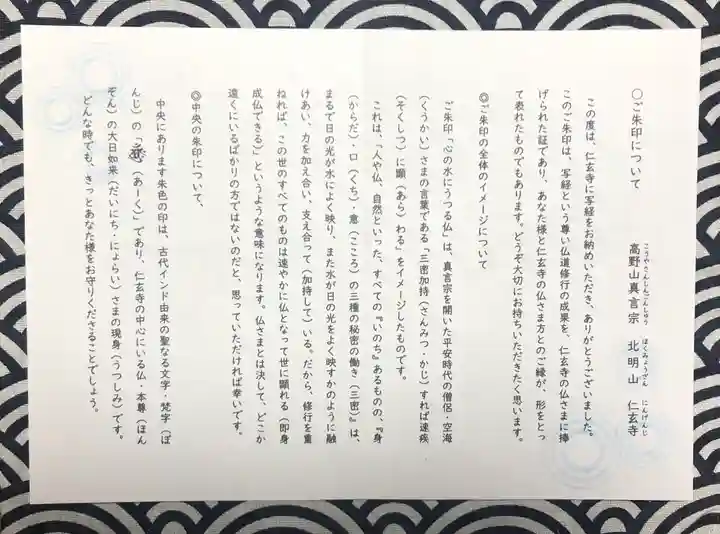 〇ご朱印について
高野山真言宗 北明山 仁玄寺
こうやさんしんごんしゅう ほくみょうざん にんげんじ
この度は、仁玄寺に写経をお納めいただき、ありがとうございました。
このご朱印は、写経という尊い仏道修行の成果を、仁玄寺の仏さまに捧
げられた証であり、あなた様と仁玄寺の仏さま方とのご縁が、形をとっ
て表れたものでもあります。どうぞ大切にお持ちいただきたく思います。
◎ご朱印の全体のイメージについて
ご朱印「心の水にうつる仏」は、真言宗を開いた平安時代の僧侶・空海
（くうかい）さまの言葉である「三密加持（さんみつ・かじ）すれば速疾
（そくしつ）に顕（あら）わる」をイメージしたものです。
これは、「人や仏、自然といった、すべての『いのち』あるものの、『身
（からだ）・口（くち）・意（こころ）の三種の秘密の働き（三密）』は、
まるで日の光が水によく映り、また水が日の光をよく映すかのように融
けあい、力を加え合い、支え合って（加持して）いる。だから、修行を重
ねれば、この世のすべてのものは速やかに仏となって世に顕れる（即身
成仏できる）」というような意味になります。仏さまとは決して、どこか
遠くにいるばかりの方ではないのだと、思っていただければ幸いです。
◎中央の朱印について、
中央にあります朱色の印は、古代インド由来の聖なる文字・梵字（ぼ
んじ）の「（あーく）」であり、仁玄寺の中心にいる仏・本尊（ほん
ぞん）の大日如来（だいにち・にょらい）さまの現身（うつしみ）です。
どんな時でも、きっとあなた様をお守りくださることでしょう。